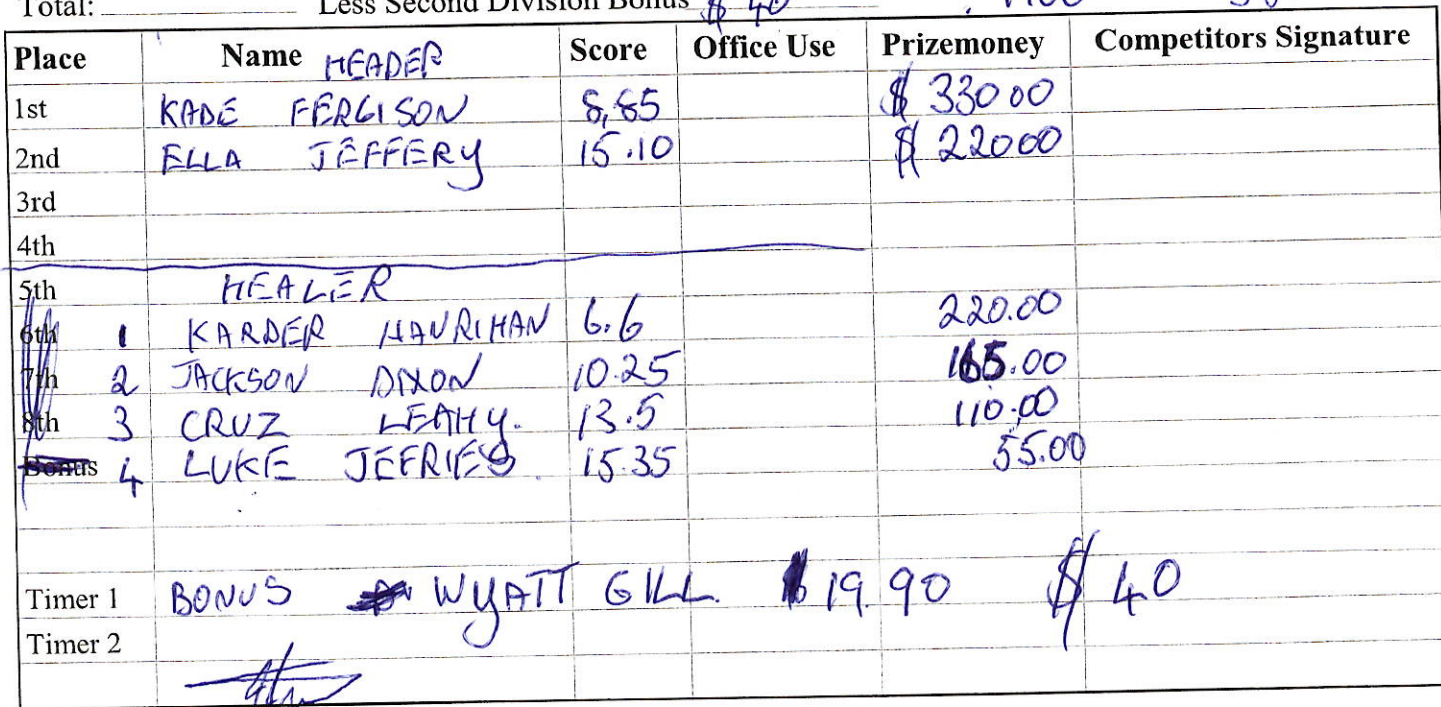 Total: Less Second Division Bonus $ 40
Place Name HEADER Score Office Use Prizemoney Competitors Signature
1st KADE FERGISON 8,85 $ 330 00
2nd ELLA JEFFERY 15.10 $ 220 00
3rd
4th
5th HEALER
6th 1 KARDER HANRIHAN 6.6 220.00
7th 2 JACKSON DIXON 10.25 165.00
8th 3 CRUZ LEAHY. 13.5 110.00
Bonus 4 LUKE JEFRIES. 15.35 55.00
Timer 1 BONUS WYATT GILL 19.90 $ 40
Timer 2